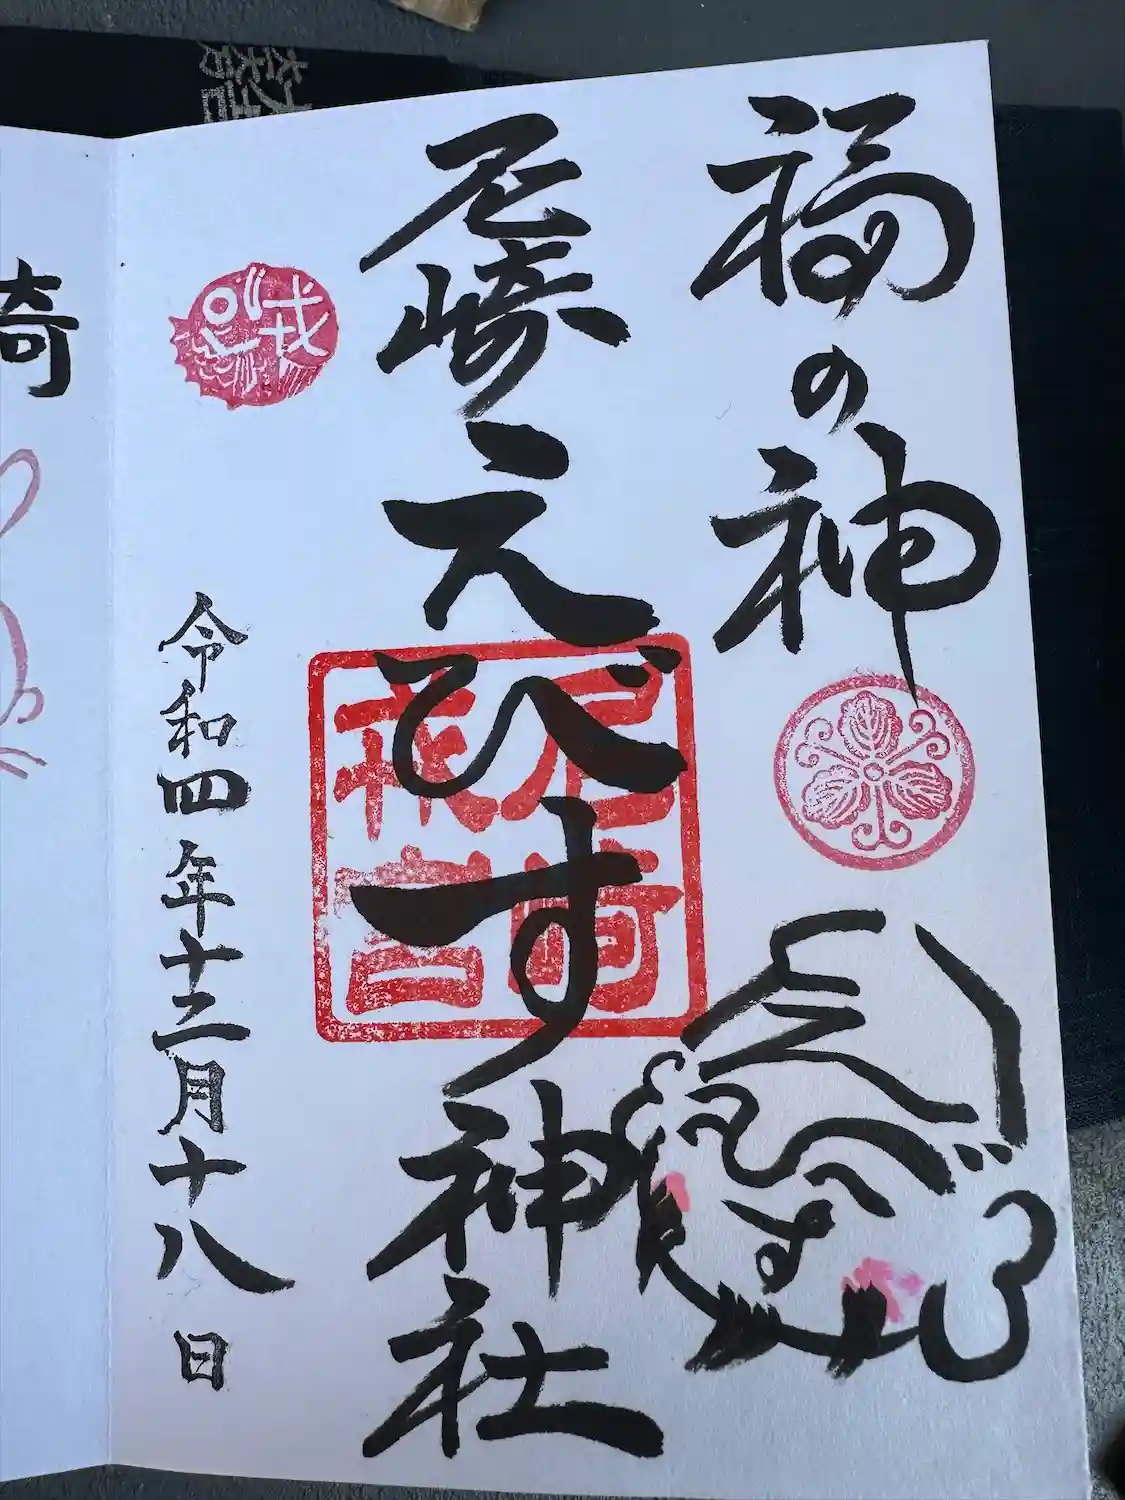 福の神
えびす
尼崎えびす神社
尼崎
戎宮
令和四年十二月十八日
崎